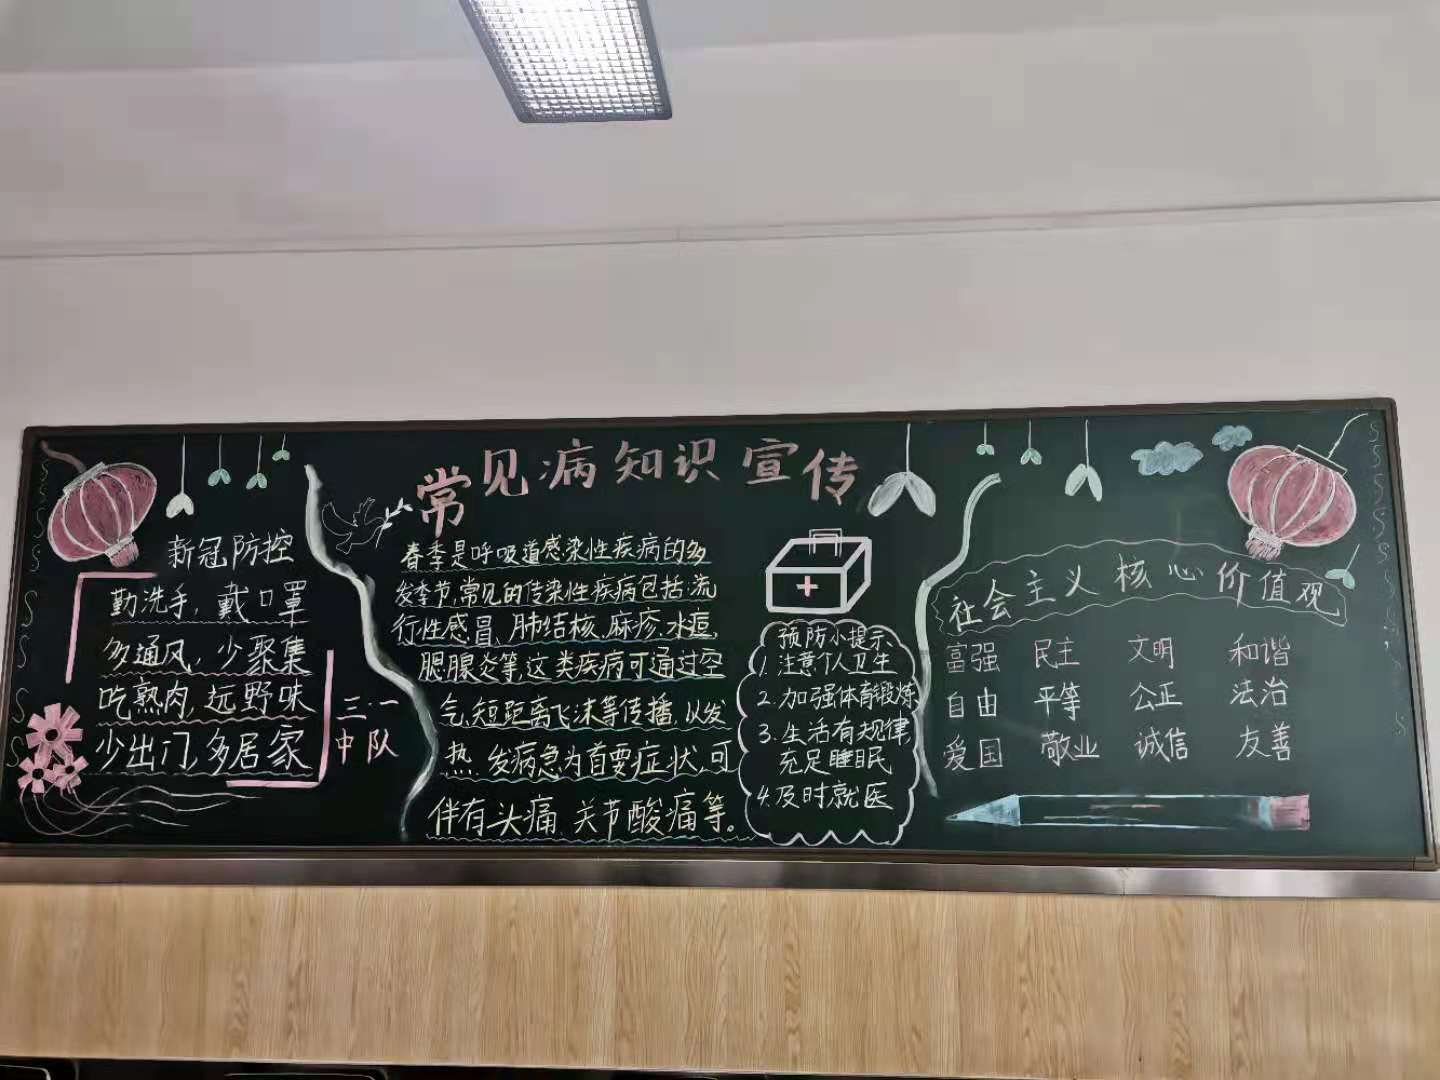 常见病知识宣传
新冠防控
勤洗手，戴口罩
多通风，少聚集
吃熟肉，远野味
少出门，多居家
三·一
中队
春季是呼吸道感染性疾病的多
发季节，常见的传染性疾病包括：流
行性感冒、肺结核、麻疹、水痘、
腮腺炎等，这类疾病可通过空
气、短距离飞沫等传播，以发
热、发病急为首要症状，可
伴有头痛、关节酸痛等。
预防小提示
1. 注意个人卫生
2. 加强体育锻炼
3. 生活有规律，
充足睡眠
4. 及时就医
社会主义核心价值观
富强 民主 文明 和谐
自由 平等 公正 法治
爱国 敬业 诚信 友善